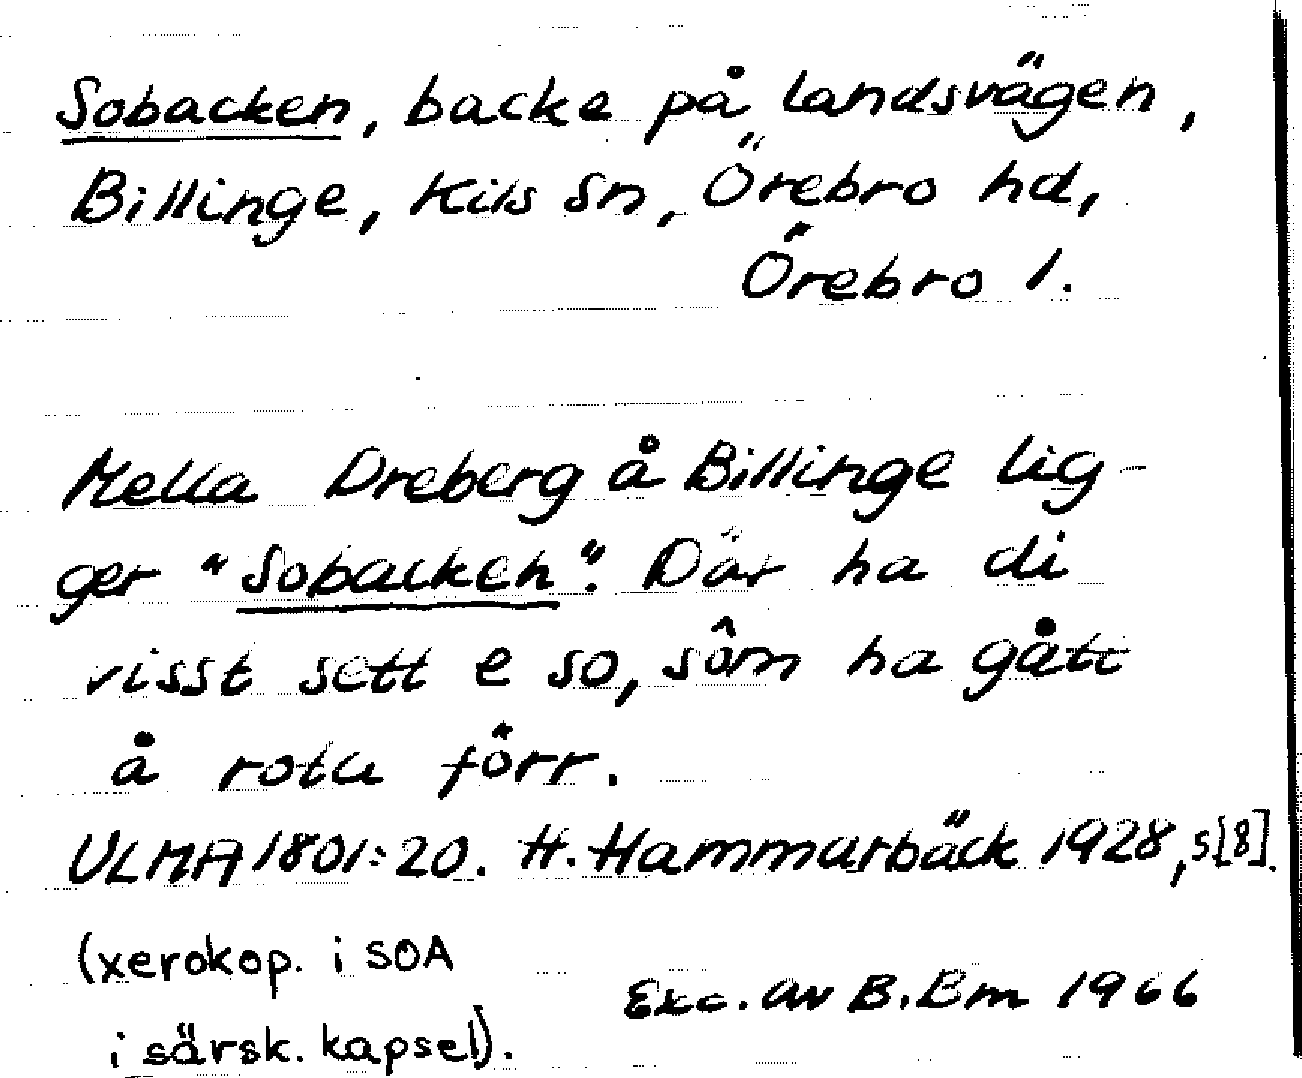 Sobacken, backe på landsvägen,
Billinge, Kils sn, Örebro hd,
Örebro l.
Mella Dreberg å Billinge lig-
ger "Sobacken". Där ha di
visst sett e so, sôm ha gått
å rota förr.
ULMA 1801:20. H. Hammarbäck 1928, s[8].
(xerokop. i SOA
i särsk. kapsel).
Exc. av B.Em 1966